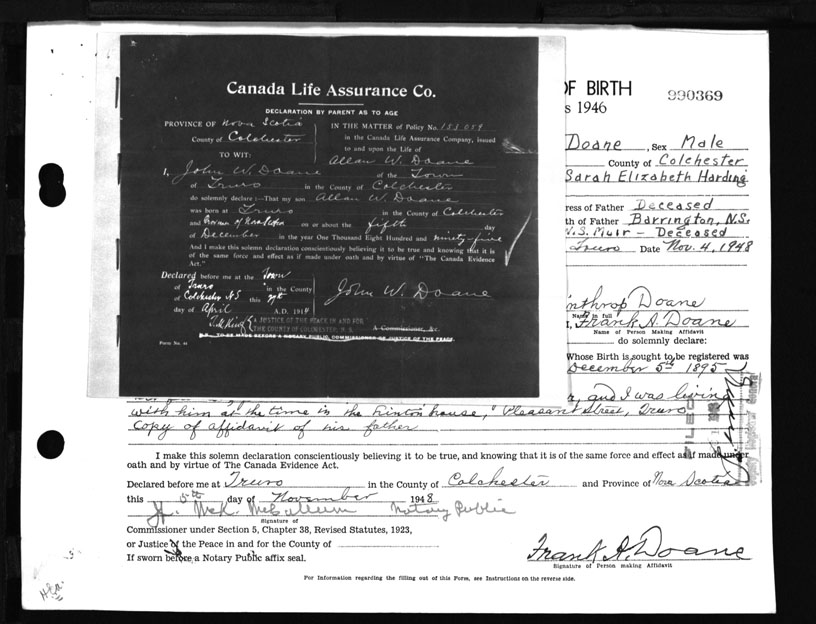 Canada Life Assurance Co.
DECLARATION BY PARENT AS TO AGE
PROVINCE OF Nova Scotia
County of Colchester
TO WIT:
IN THE MATTER of Policy No. 153059
in the Canada Life Assurance Company, issued
to and upon the Life of
Allan W. Doane
I, John W. Doane of the Town
of Truro in the County of Colchester
do solemnly declare:-That my son Allan W. Doane
was born at Truro in the County of Colchester
and Province of Nova Scotia on or about the fifth day
of December in the year One Thousand Eight Hundred and ninety five
And I make this solemn declaration conscientiously believing it to be true and knowing that it is
of the same force and effect as if made under oath and by virtue of "The Canada Evidence
Act."
Declared before me at the Town
of Truro in the County
of Colchester N.S this
day of April A.D. 1914
John W. Doane
A JUSTICE OF THE PEACE IN AND FOR
THE COUNTY OF COLCHESTER, N. S.
A Commissioner, &c.
P.S. TO BE MADE BEFORE A NOTARY PUBLIC, COMMISSIONER OR JUSTICE OF THE PEACE.
Form No. 44
OF BIRTH
s 1946
990369
Doane, Sex Male
County of Colchester
Sarah Elizabeth Harding
ress of Father Deceased
th of Father Barrington, N.S.
N.S. Muir - Deceased
Truro Date Nov. 4, 1948
inthrop Doane
Name in full
I, Frank A. Doane
Name of Person Making Affidavit
do solemnly declare:
Whose Birth is sought to be registered was
December 5th 1895
r, and I was living
with him at the time in the Linton house, Pleasant Street, Truro
Copy of affidavit of his father
FILED
I make this solemn declaration conscientiously believing it to be true, and knowing that it is of the same force and effect as if made under
oath and by virtue of The Canada Evidence Act.
Declared before me at Truro in the County of Colchester and Province of Nova Scotia
this 5th day of November 1948
H. McK. McCallum Notary Public
Signature of
Commissioner under Section 5, Chapter 38, Revised Statutes, 1923,
or Justice of the Peace in and for the County of
If sworn before a Notary Public affix seal.
Frank A. Doane
Signature of Person making Affidavit
For Information regarding the filling out of this Form, see Instructions on the reverse side.